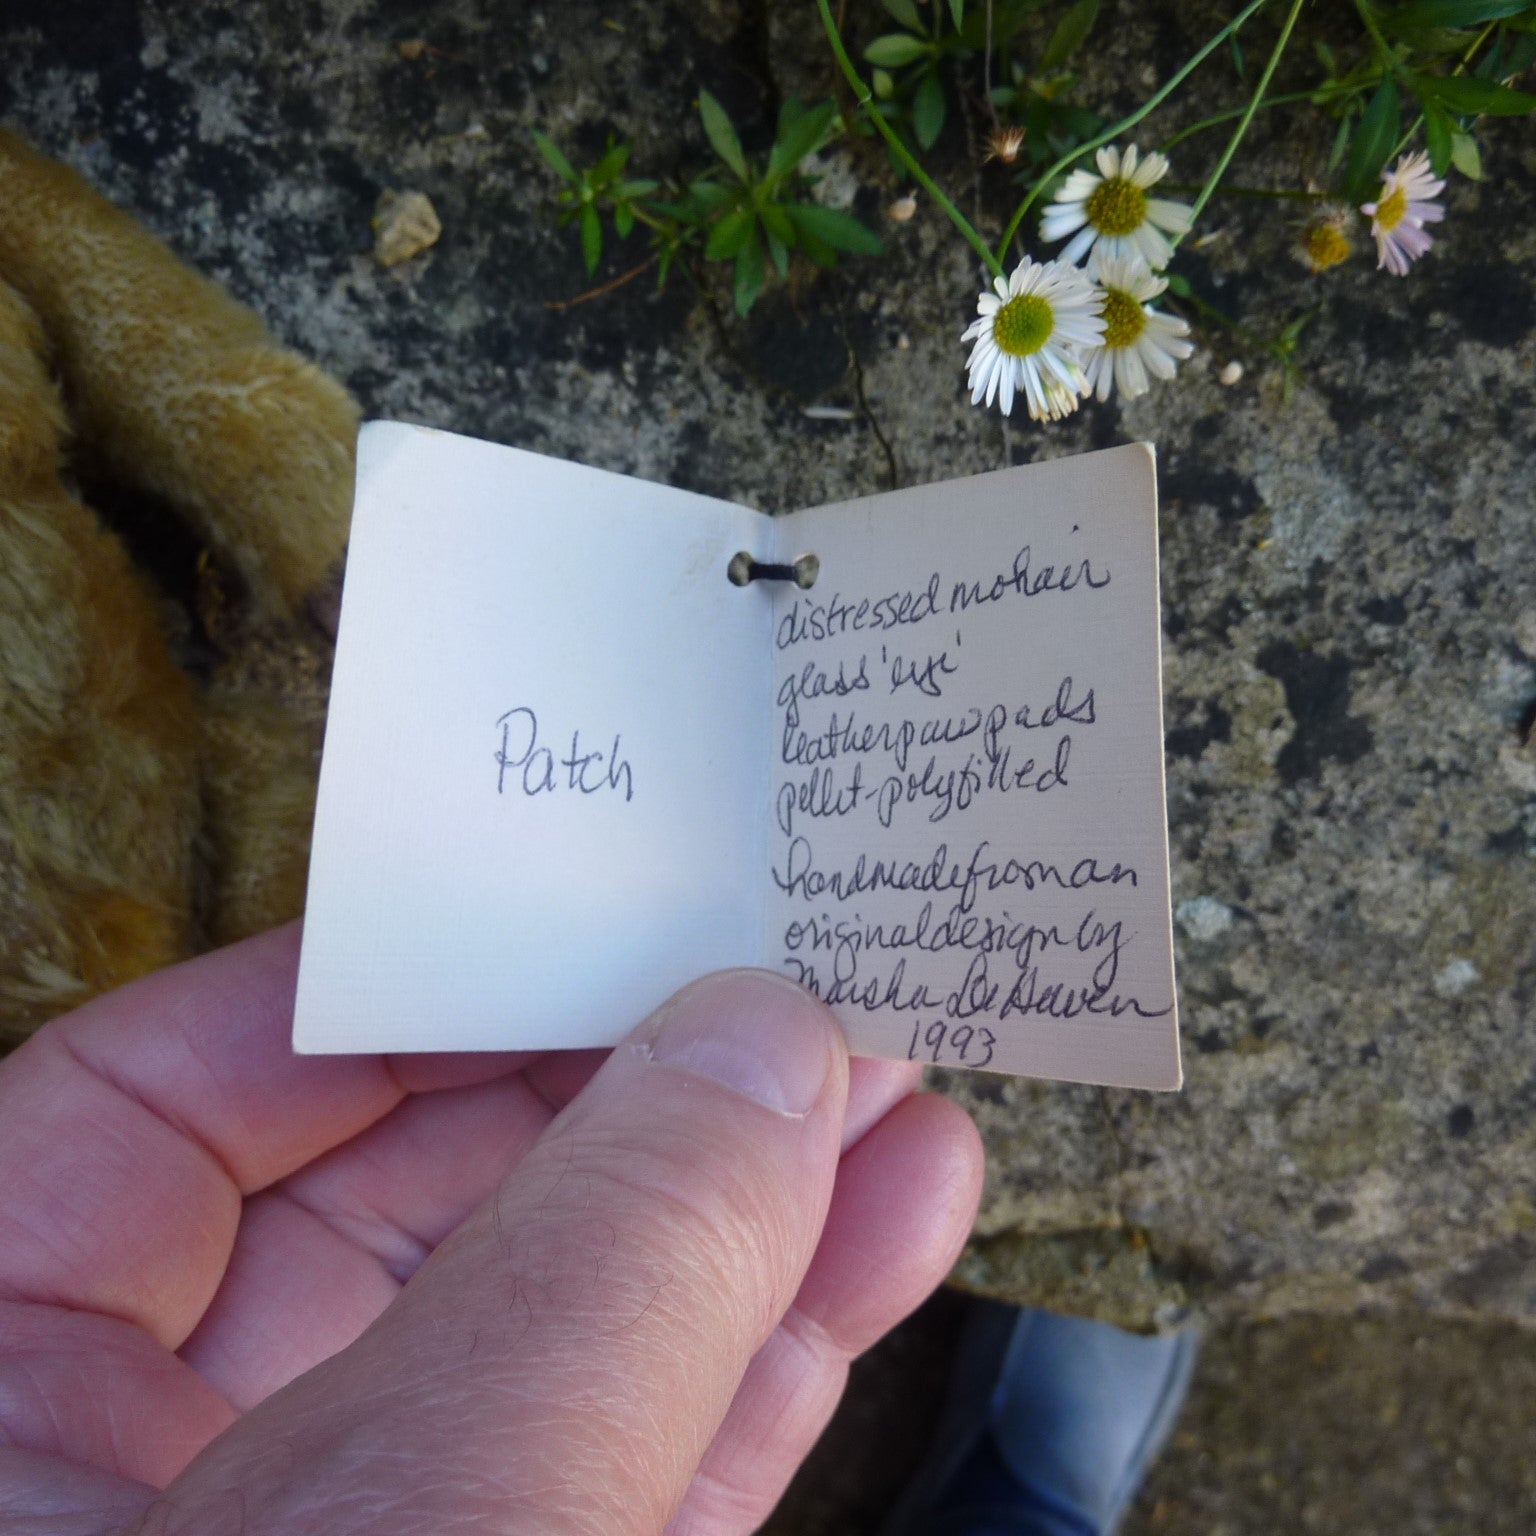 Patch
distressed mohair
glass 'eye'
leather paw pads
pellet-polyfilled
handmade from an
original design by
Marsha DeHaven
1993